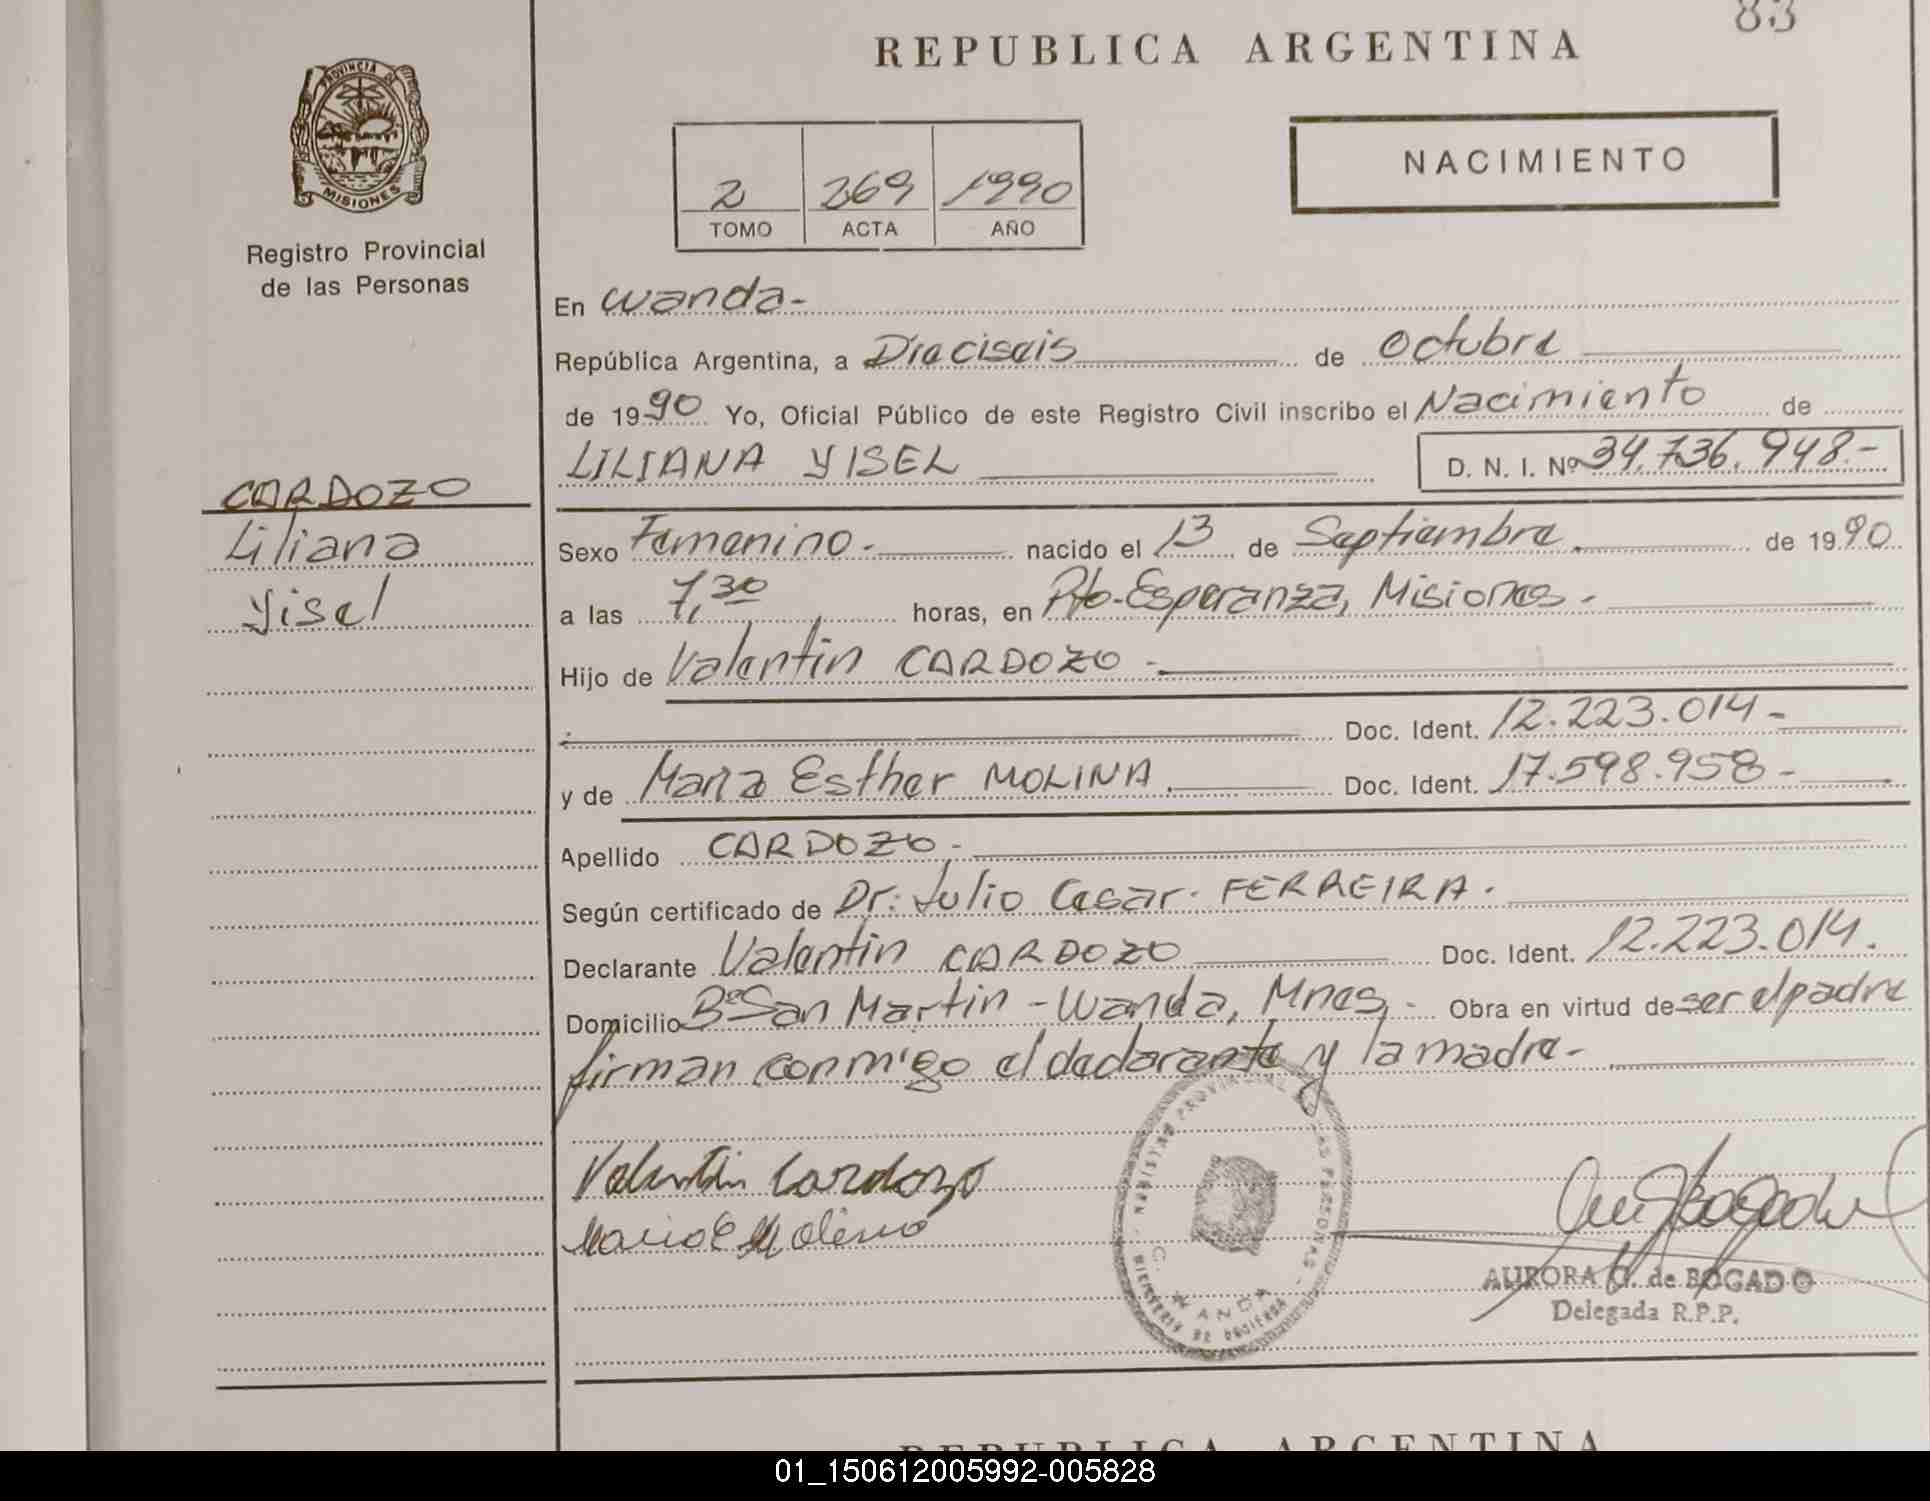 83
REPUBLICA ARGENTINA
PROVINCIA DE
MISIONES
Registro Provincial
de las Personas
2 269 1990
TOMO ACTA AÑO
NACIMIENTO
En Wanda-
República Argentina, a Dieciseis de Octubre
de 1990 Yo, Oficial Público de este Registro Civil inscribo el Nacimiento de
LILIANA YISEL D. N. I. Nº 34.736.948.-
CARDOZO
Liliana
Yisel
Sexo Femenino.- nacido el 13 de Septiembre de 1990
a las 7,30 horas, en Pto-Esperanza, Misiones.-
Hijo de Valentin CARDOZO.-
Doc. Ident. 12.223.014-
y de Maria Esther MOLINA. Doc. Ident. 17.598.958-
Apellido CARDOZO.-
Según certificado de Dr: Julio Cesar. FERREIRA.
Declarante Valentin CARDOZO Doc. Ident. 12.223.014.
Domicilio Bº San Martin - Wanda, Mnes.- Obra en virtud de ser el padre
firman conmigo el declarante y la madre-
Valentin Cardozo
Maria E Molina
WANDA
AURORA G. de BOGADO
Delegada R.P.P.
REPUBLICA ARGENTINA
01_150612005992-005828